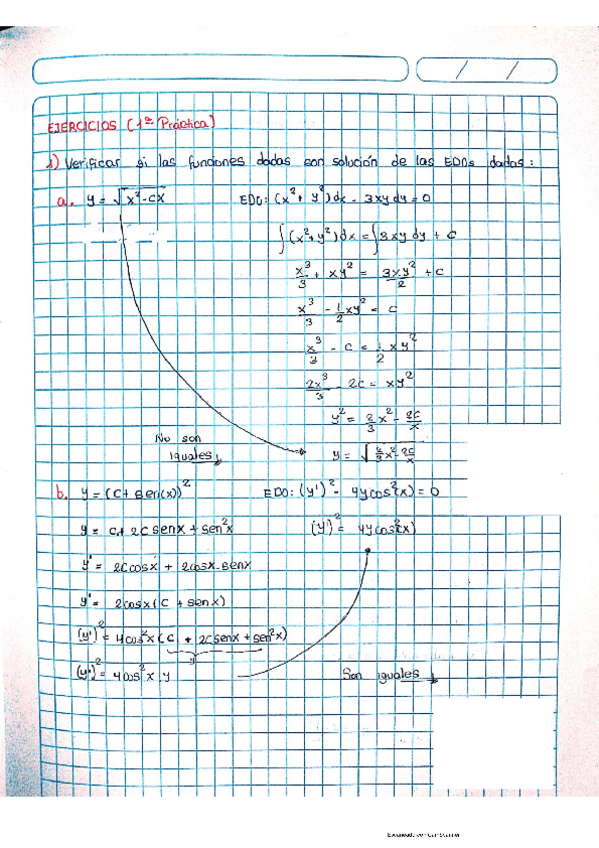 / /
EJERCICIOS (1ª Práctica)
1) Verificar si las funciones dadas son solución de las EDOs dadas:
a. y = √(x²-cx) EDO: (x² + y²)dx - 3xy dy = 0
∫(x²+y²)dx = ∫3xy dy + C
x³/3 + xy² = 3xy²/2 + C
x³/3 - 1/2 xy² = C
x³/3 - C = 1/2 xy²
2x³/3 - 2C = xy²
y² = 2/3 x² - 2C/x
No son iguales
y = √(2/3 x² - 2C/x)
b. y = (C + sen(x))² EDO: (y')² - 4y cos²(x) = 0
y = C + 2C senx + sen²x (y')² = 4y cos²(x)
y' = 2C cosx + 2cosx.senx
y' = 2cosx (C + senx)
(y')² = 4cos²x (C + 2C senx + sen²x)
y
(y')² = 4cos²x.y Son iguales
Escaneado con CamScanner